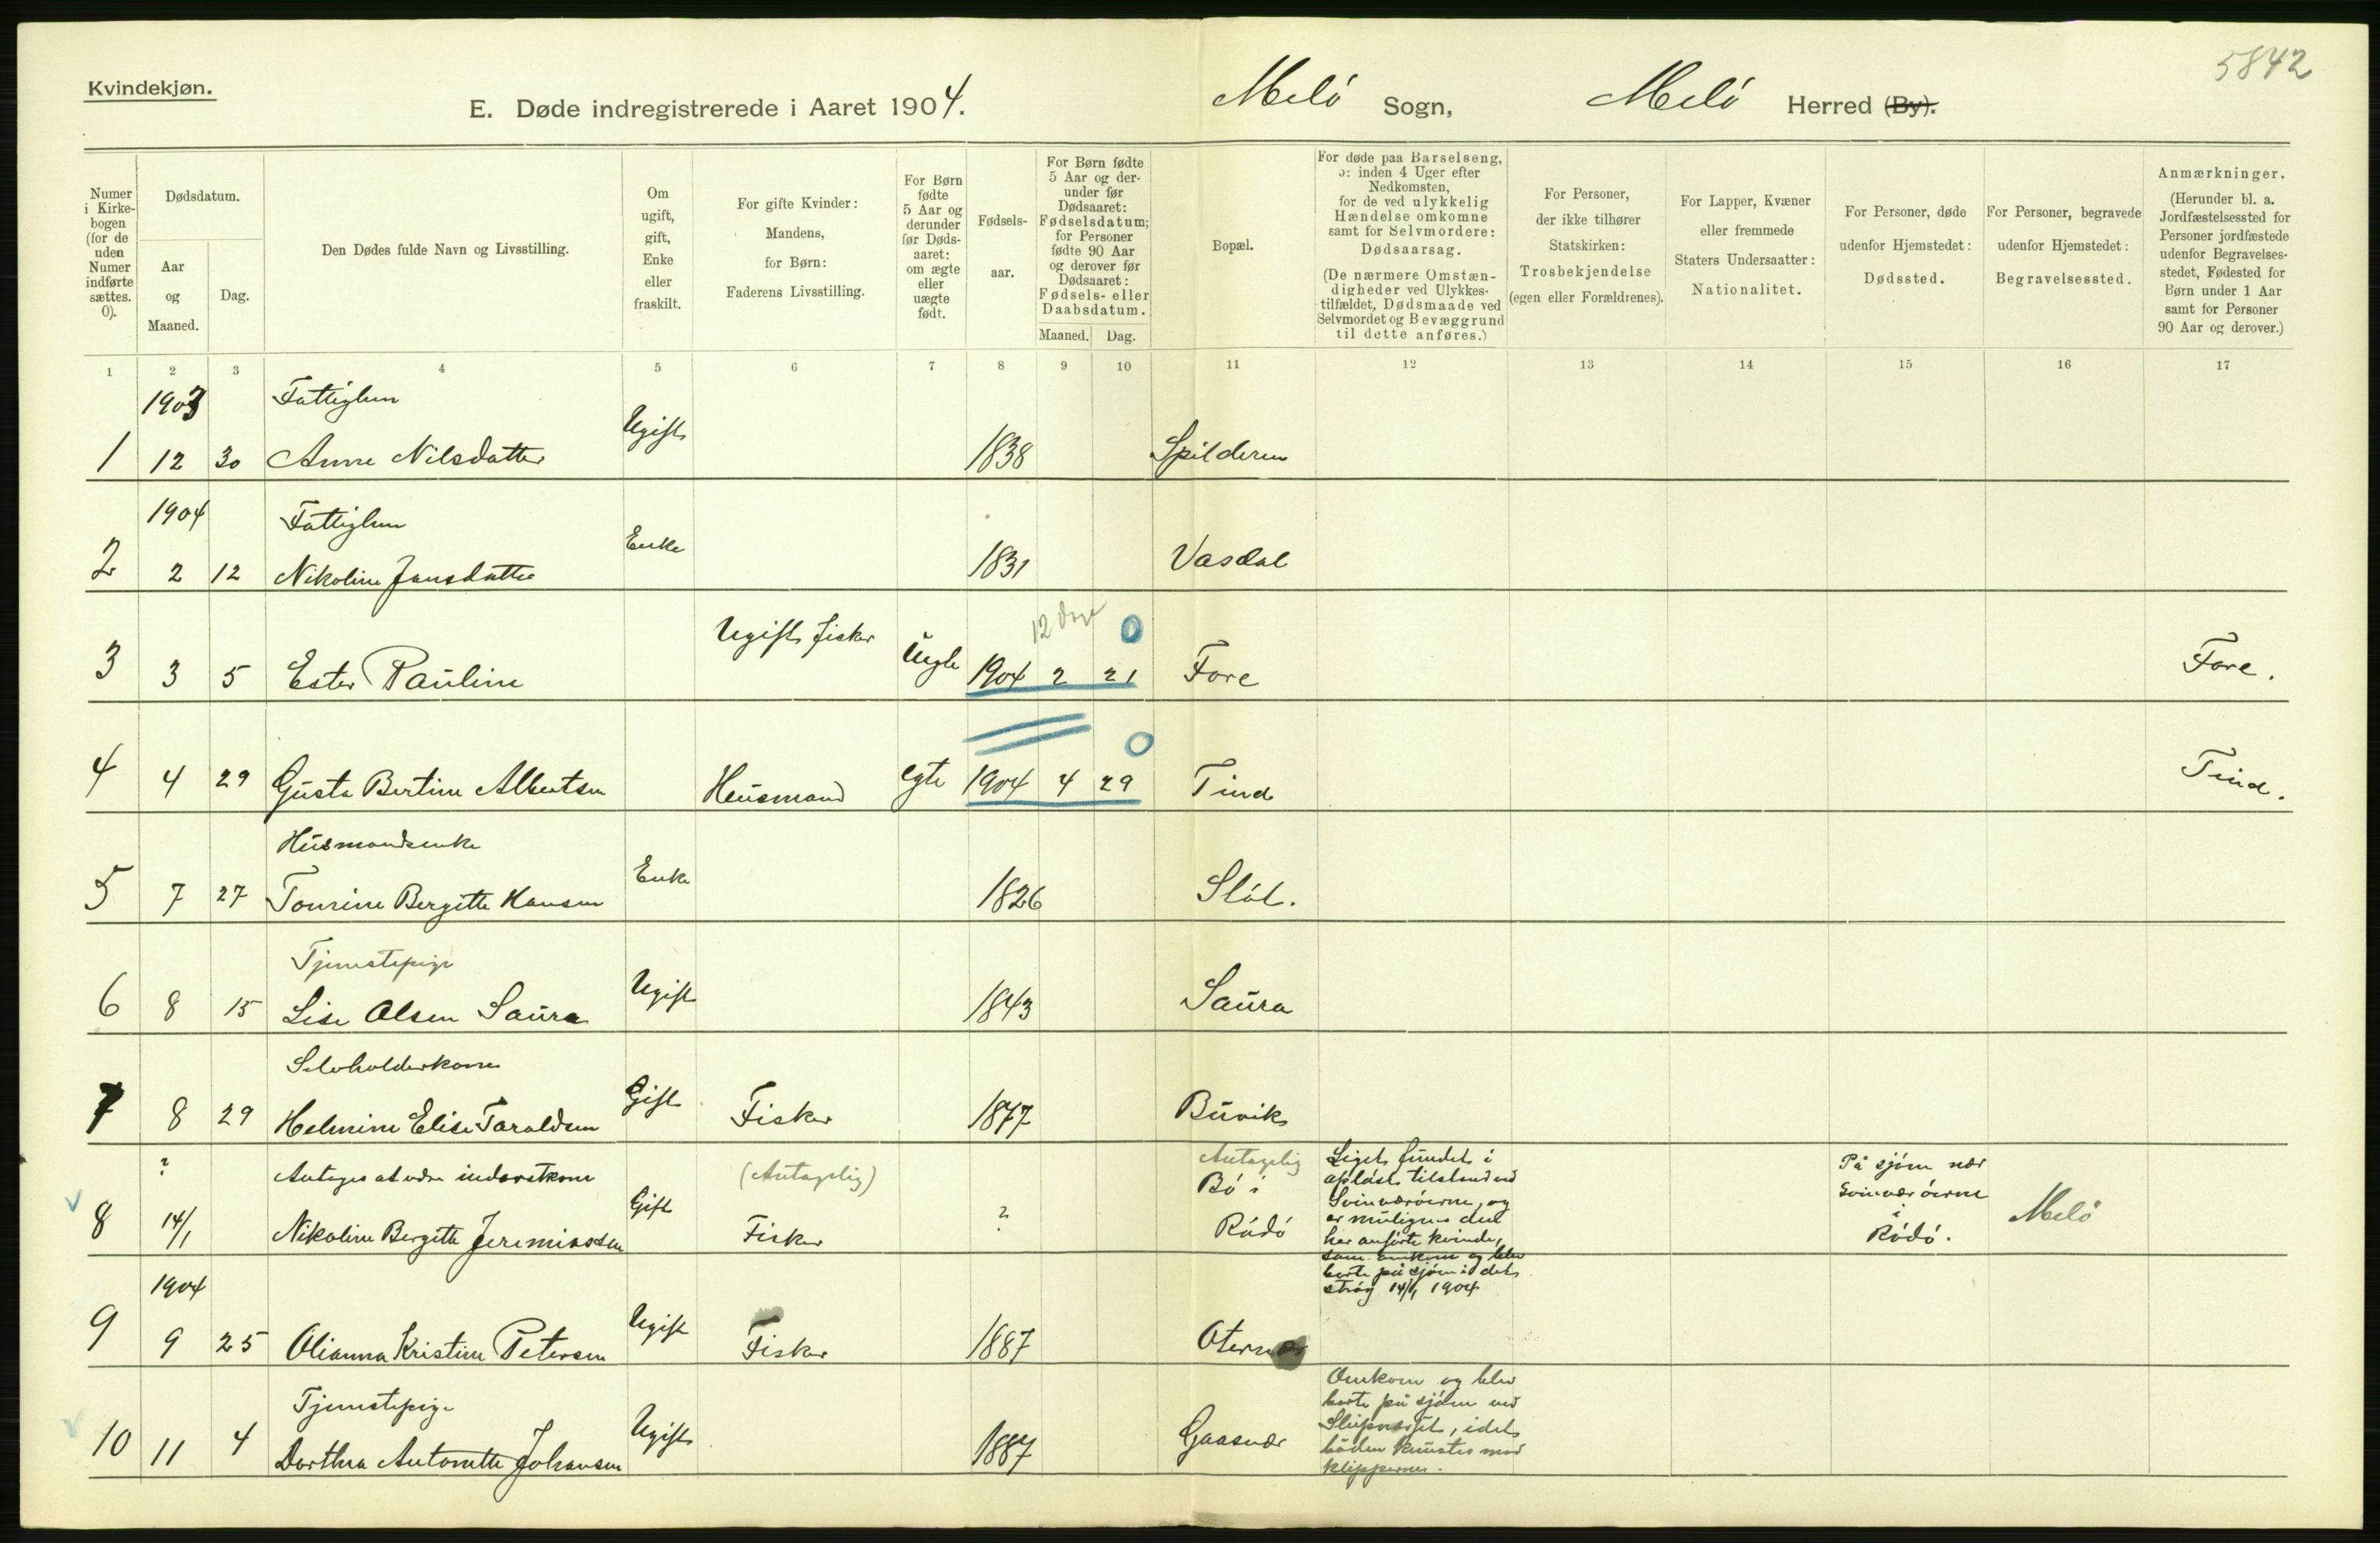 5842
Kvindekjøn.
E. Døde indregistrerede i Aaret 1904. Melö Sogn, Melö Herred (By).
Numer
i Kirke-
bogen
(for de
uden
Numer
indførte
sættes.
0).
Dødsdatum.
Aar
og
Maaned.
Dag.
Den Dødes fulde Navn og Livsstilling.
Om
ugift,
gift,
Enke
eller
fraskilt.
For gifte Kvinder:
Mandens,
for Børn:
Faderens Livsstilling.
For Børn
fødte
5 Aar og
derunder
før Døds-
aaret:
om ægte
eller
uægte
født.
Fødsels-
aar.
For Børn fødte
5 Aar og der-
under før
Dødsaaret:
Fødselsdatum;
for Personer
fødte 90 Aar
og derover før
Dødsaaret:
Fødsels- eller
Daabsdatum.
Maaned. Dag.
Bopæl.
For døde paa Barselseng,
ɔ: inden 4 Uger efter
Nedkomsten,
for de ved ulykkelig
Hændelse omkomne
samt for Selvmordere:
Dødsaarsag.
(De nærmere Omstæn-
digheder ved Ulykkes-
tilfældet, Dødsmaade ved
Selvmordet og Bevæggrund
til dette anføres.)
For Personer,
der ikke tilhører
Statskirken:
Trosbekjendelse
(egen eller Forældrenes).
For Lapper, Kvæner
eller fremmede
Staters Undersaatter:
Nationalitet.
For Personer, døde
udenfor Hjemstedet:
Dødssted.
For Personer, begravede
udenfor Hjemstedet:
Begravelsessted.
Anmærkninger.
(Herunder bl. a.
Jordfæstelsessted for
Personer jordfæstede
udenfor Begravelses-
stedet, Fødested for
Børn under 1 Aar
samt for Personer
90 Aar og derover.)
1 2 3 4 5 6 7 8 9 10 11 12 13 14 15 16 17
1903 Fattiglem
1 12 30 Anne Nilsdatter Ugift 1838 Spilderen
1904 Fattiglem
2 2 12 Nikoline Jansdatter Enke 1831 Vasdal
12 0
3 3 5 Ester Pauline Ugift fisker Uegte 1904 2 21 Fore Fore.
0
4 4 29 Gusta Bertine Albertsen Husmand egte 1904 4 29 Tind Tind.
Husmandsenke
5 7 27 Bergitte Hansen Enke 1826 Stöt.
Tjenestepige
6 8 15 Lise Olsen Saura Ugift 1843 Saura
Selvholderkone
7 8 29 Helmine Elise Taraldsen Gift Fisker 1877 Buvik
? Antages at være inderstkone (Antagelig)
8 14/1 Nikoline Bergitte Jeremiassen Gift Fisker ?
Antagelig
Bö i
Rödö
Liget fundet i
oplöst tilstand ved
Svinværöerne, og
er muligens den
her anförte kvinde,
som omkom og blev
borte på sjöen i det
strög 14/1 1904
På sjöen nær
Svinværöerne
i
Rödö.
Melö
1904
9 9 25 Olianna Kristine Petersen Ugift Fisker 1887 Oternær
Tjenestepige
10 11 4 Dorthea Antonette Johansen Ugift 1887 Gaasvær
Omkom og blev
borte på sjöen ved
idet
båden knustes mod
klipperne.